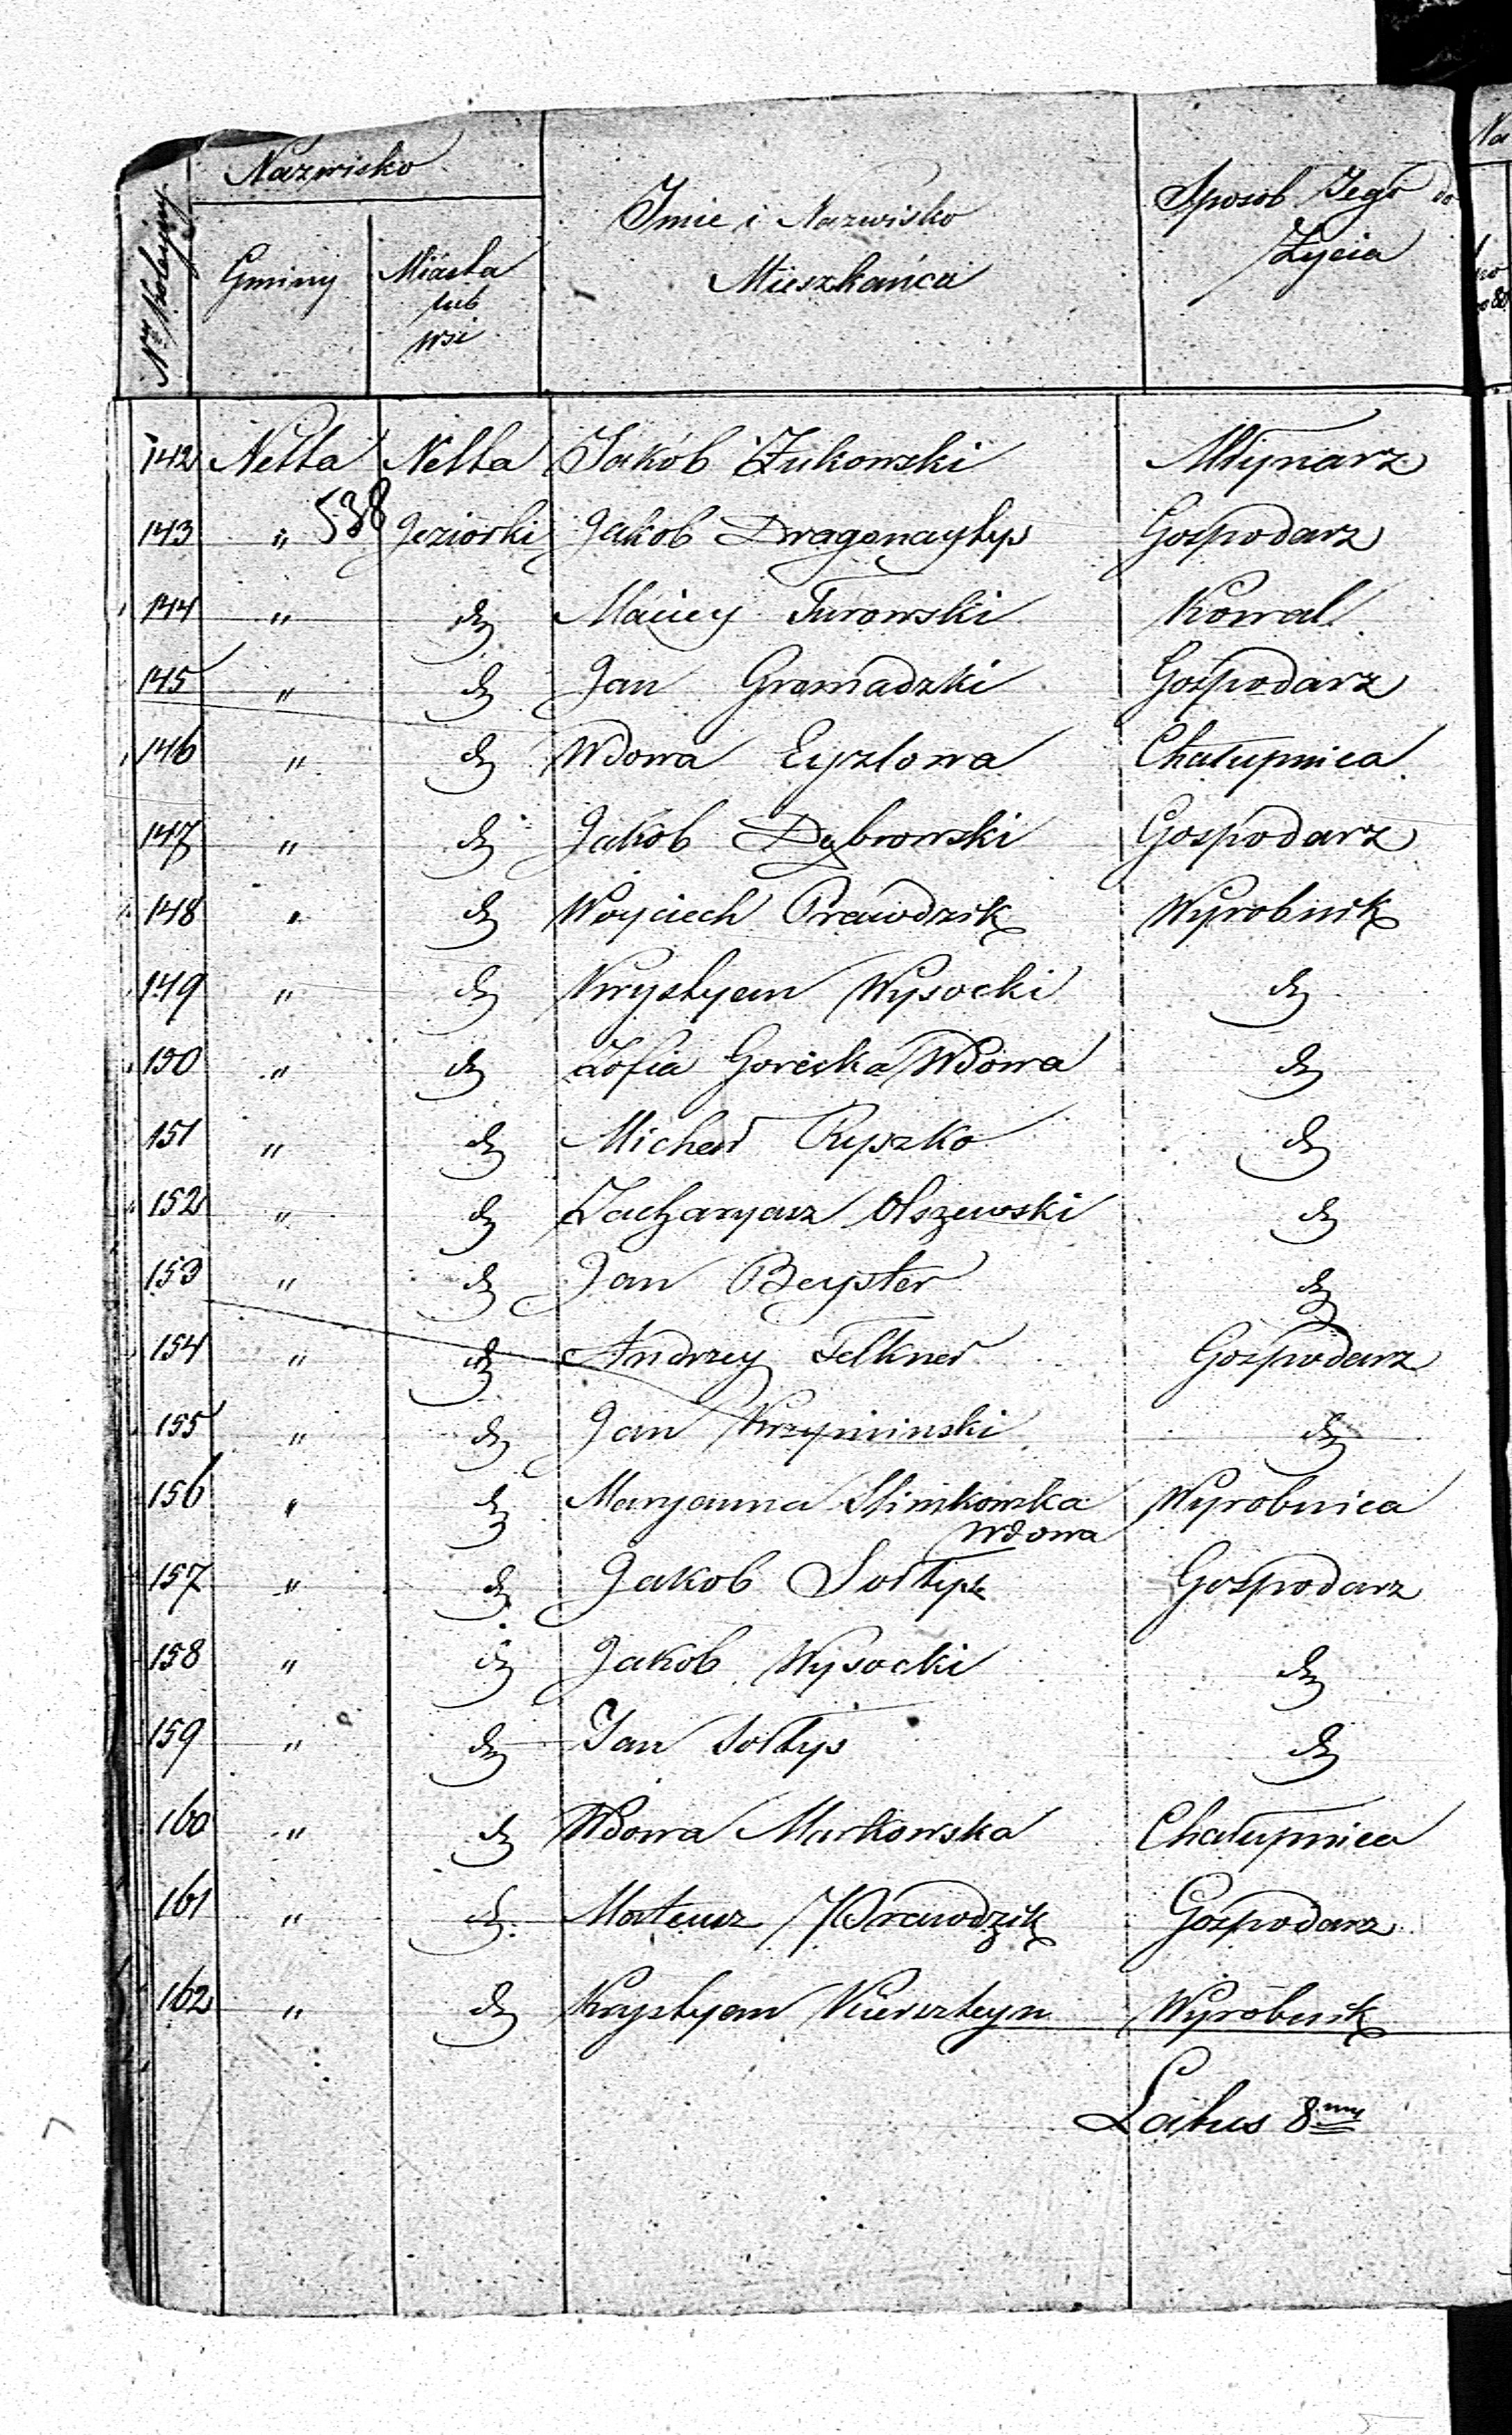 Nazwisko
Nr Kolejny
Gminy
Miasta
lub
wsi
Imie i Nazwisko
Mieszkańca
Sposob Jego do
Życia
142 Netta Netta Jakób Żukowski Młynarz
143 " 538 Jeziorki Jakob Gospodarz
144 " do Maciey Turowski Kowal
145 " do Jan Gromadzki Gospodarz
146 " do Wdowa Chałupnica
147 " do Jakob Dybrowski Gospodarz
148 " do Woyciech Prawdzik Wyrobnik
149 " do Krystyan Wysocki do
150 " do Zofia Gorecka Wdowa do
151 " do Michał Ryszko do
152 " do Zacharyasz Olszewski do
153 " do Jan Beyster do
154 " do Andrzey Felkner Gospodarz
155 " do Jan do
156 " do Maryanna Wyrobnica
Wdowa
157 " do Jakob Sołtys Gospodarz
158 " do Jakob Wysocki do
159 " do Jan Sołtys do
160 " do Wdowa Markowska Chałupnica
161 " do Mateusz Prawdzik Gospodarz
162 " do Krystyan Kiersztyn Wyrobnik
Latus 8my